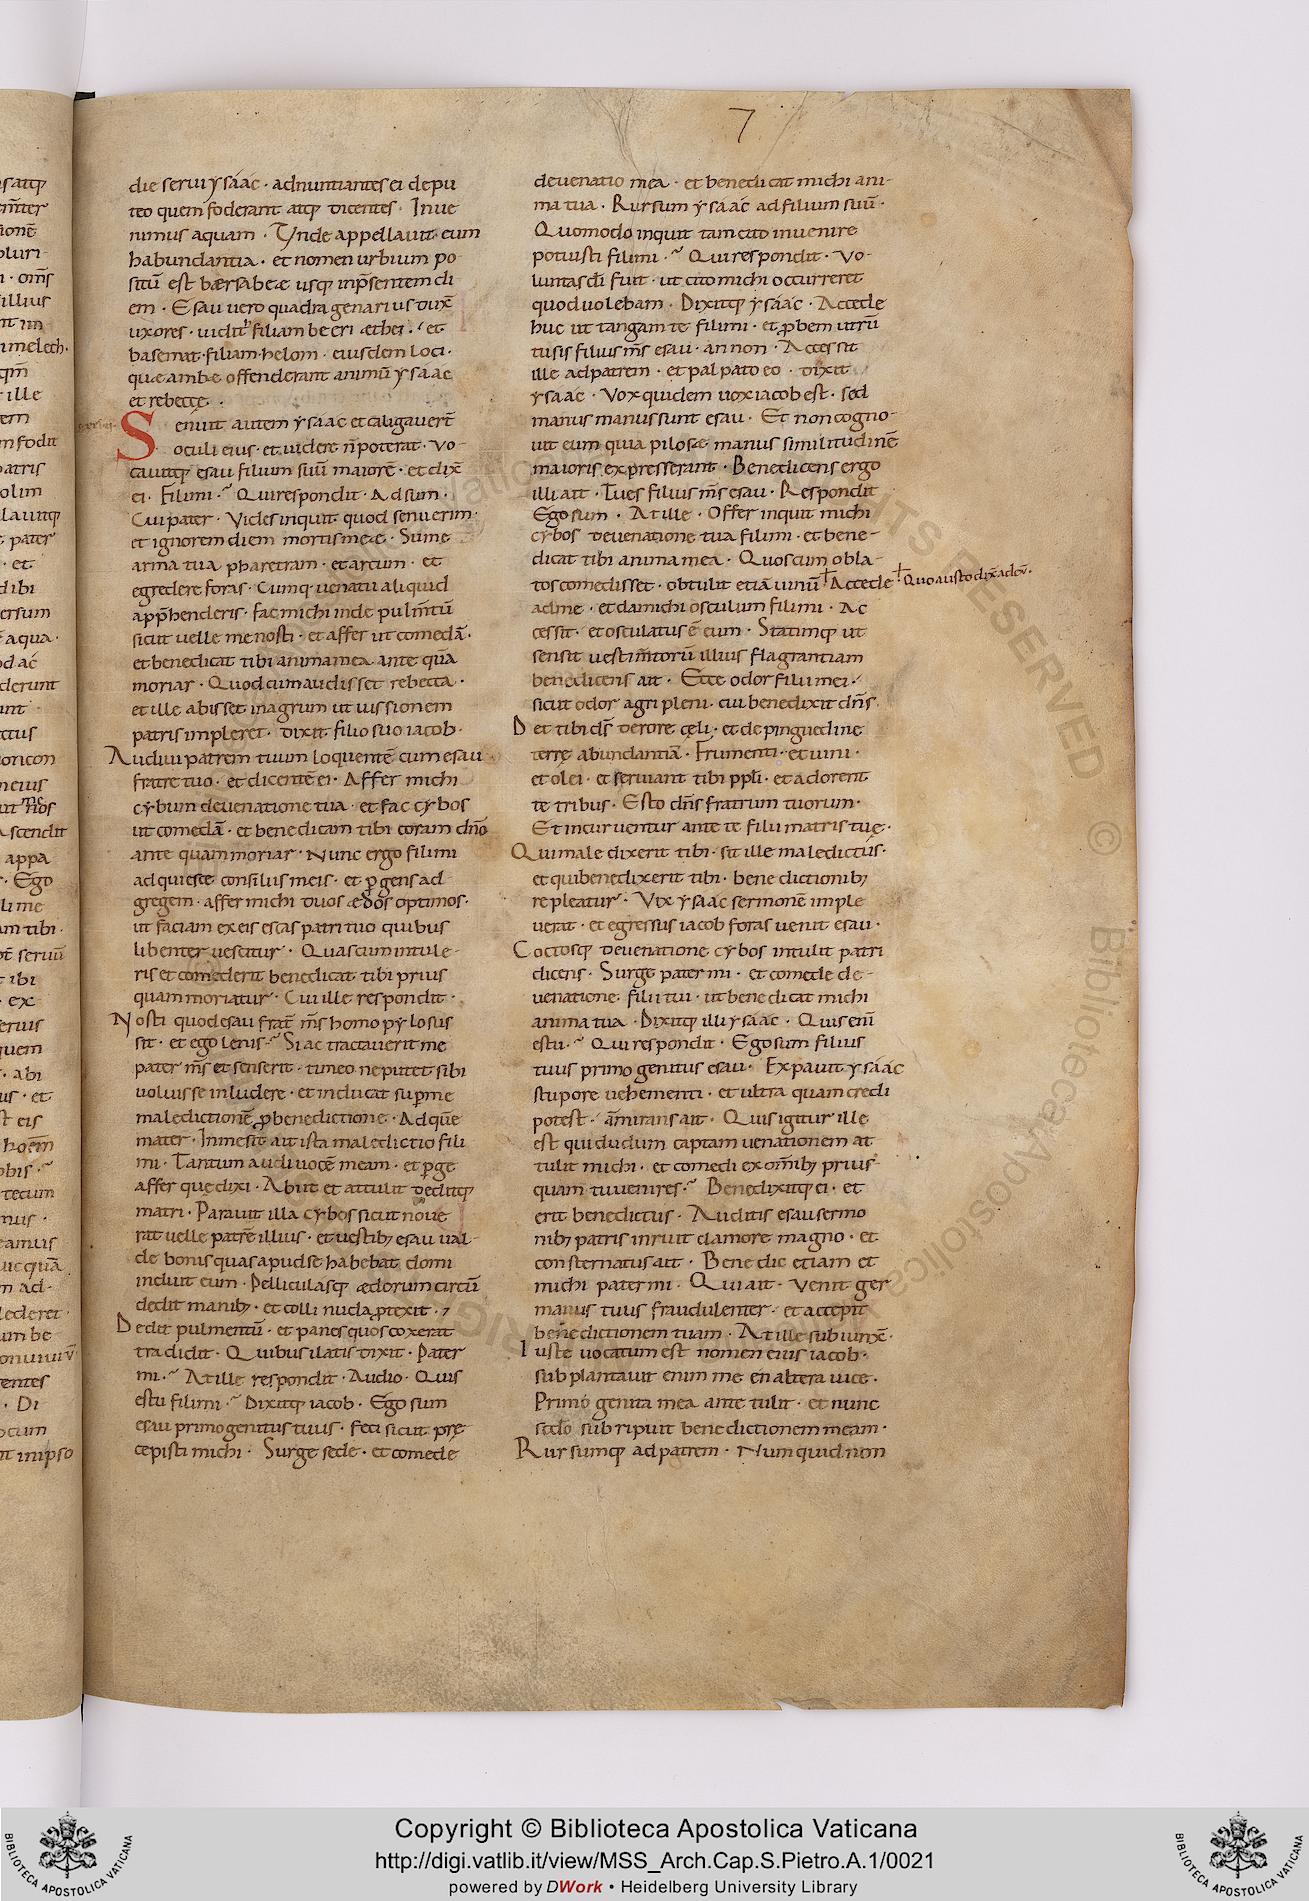 7
die serui ysaac · adnuntiantes ei de pu
teo quem foderant atq; dicentes · Inue
nimus aquam · Unde appellauit eum
habundantia · et nomen urbium po-
sitū est bærsabeæ usq; inp̄sentem di
em · Esau uero quadragenarius duxͭ
uxores · uidith filiam beeri æthei · et
basemat · filiam · helom · eiusdem loci ·
que ambe offenderant animū ysaac
et rebecce ·
Senuit autem ysaac et caligauert̄
oculi eius · et uidere n̄ poterat · Vo-
cauitq; esau filium suū maiorē · et dix̄
ei · Fili mi · Qui respondit · Adsum ·
Cui pater · Vides inquit quod senuerim ·
et ignorem diem mortis meæ · Sume
arma tua pharetram · et arcum · et
egredere foras · Cumq; uenatu aliquid
app̄henderis · fac michi inde pulm̄tū
sicut uelle me nosti · et affer ut comedā ·
et benedicat tibi anima mea ante quā
moriar · Quod cum audisset rebecca ·
et ille abisset in agrum ut iussionem
patris impleret · dixit filio suo iacob ·
Audiui patrem tuum loquentē cum esau
fratre tuo · et dicentē ei · Affer michi
cybum de uenatione tua · et fac cybos
ut comedā · et benedicam tibi coram dn̄o
ante quam moriar · Nunc ergo fili mi
adquiesce consiliis meis · et p̱gens ad
gregem · affer michi duos ædos optimos ·
ut faciam ex eis escas patri tuo quibus
libenter uescitur · Quas cum intule-
ris et comederit benedicat tibi prius
quam moriatur · Cui ille respondit ·
Nosti quod esau frat̄ ms̄ homo pylosus
sit · et ego lenis · Si ac tractauerit me
pater ms̄ et senserit · timeo ne putet sibi
uoluisse inludere · et inducat sup̱ me
maledictionē p̱ benedictione · Ad quē
mater · In me sit ait ista maledictio fili
mi · Tantum audi uocē meam · et p̱ge
affer que dixi · Abiit et attulit deditq;
matri · Parauit illa cybos sicut noue
rat uelle patrē illius · et uestib; esau ual-
de bonis quas apud se habebat domi
induit eum · Pelliculasq; ædorum circū
dedit manib; · et colli nuda p̱texit · 7
Dedit pulmentū · et panes quos coxerat
tradidit · Quibus ilatis dixit · Pater
mi · At ille respondit · Audio · Quis
es tu fili mi · Dixitq; iacob · Ego sum
esau primogenitus tuus · Feci sicut pre
cepisti michi · Surge sede · et comede
de uenatio mea · et benedicat michi ani-
ma tua · Rursum ysaac ad filium suū ·
Quomodo inquit tam cito inuenire
potuisti fili mi · Qui respondit · Vo-
luntas dī fuit · ut cito michi occurreret
quod uolebam · Dixitq; ysaac · Accede
huc ut tangam te fili mi · et p̱bem utrū
tu sis filius ms̄ esau · an non · Accessit
ille ad patrem · et palpato eo · dixit
ysaac · Vox quidem uox iacob est · sed
manus manus sunt esau · Et non cogno-
uit eum quia pilosæ manus similitudinē
maioris expresserant · Benedicens ergo
illi ait · Tu es filius ms̄ esau · Respondit
Ego sum · At ille · Offer inquit michi
cybos de uenatione tua fili mi · et bene-
dicat tibi anima mea · Quos cum obla-
tos comedisset · obtulit etiā uinū † Accede † Quo austo dix̄ ad eū ·
ad me · et da michi osculum fili mi · Ac
cessit · et osculatus ē eum · Statimq; ut
sensit uestim̄torū illius flagrantiam
benedicens ait · Ecce odor filii mei ·
sicut odor agri pleni · cui benedixit dn̄s ·
Det tibi ds̄ de rore cęli · et de pinguedine
terrę abundantiā · Frumenti · et uini ·
et olei · et seruiant tibi ppl̄i · et adorent
te tribus · Esto dn̄s fratrum tuorum ·
Et incuruentur ante te filii matris tuę ·
Qui male dixerit tibi · sit ille maledictus ·
et qui benedixerit tibi · benedictionib;
repleatur · Vix ysaac sermonē imple
uerat · et egressus iacob foras uenit esau ·
Coctosq; de uenatione cybos intulit patri
dicens · Surge pater mi · et comede de-
uenatione filii tui · ut benedicat michi
anima tua · Dixitq; illi ysaac · Quis enī
es tu · Qui respondit · Ego sum filius
tuus primogenitus esau · Expauit ysaac
stupore uehementi · et ultra quam credi
potest · am̄irans ait · Quis igitur ille
est qui dudum captam uenationem at
tulit michi · et comedi ex om̄ib; prius
quam tu uenires · Benedixitq; ei · et
erit benedictus · Auditis esau sermo
nib; patris inruit clamore magno · et
consternatus ait · Benedic etiam et
michi pater mi · Qui ait · Venit ger
manus tuus fraudulenter · et accepit
benedictionem tuam · At ille subiunx̄ ·
Iuste uocatum est nomen eius iacob ·
subplantauit enim me en altera uice ·
Primo genita mea ante tulit · et nunc
scdo subripuit benedictionem meam ·
Rursumq; ad patrem · Numquid non
Copyright © Biblioteca Apostolica Vaticana
http://digi.vatlib.it/view/MSS_Arch.Cap.S.Pietro.A.1/0021
powered by DWork • Heidelberg University Library